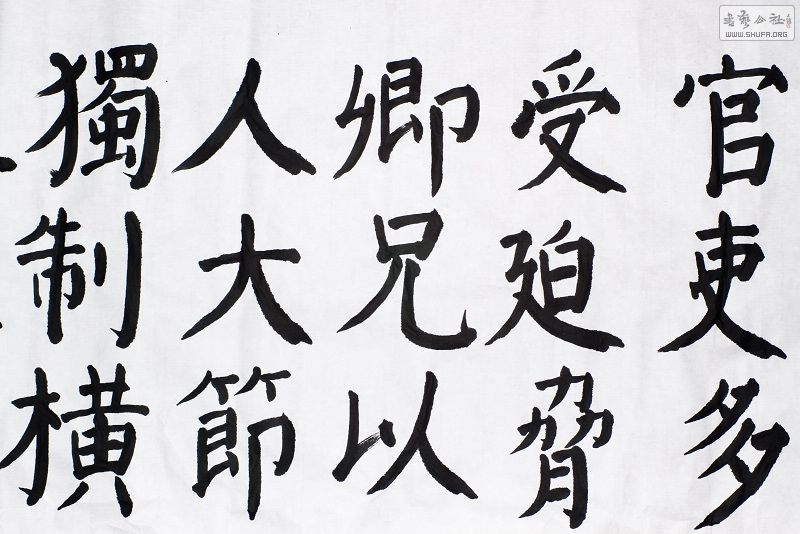 官吏多
受廹脅
卿兄以
人大節
獨制横
書藝公社
WWW.SHUFA.ORG